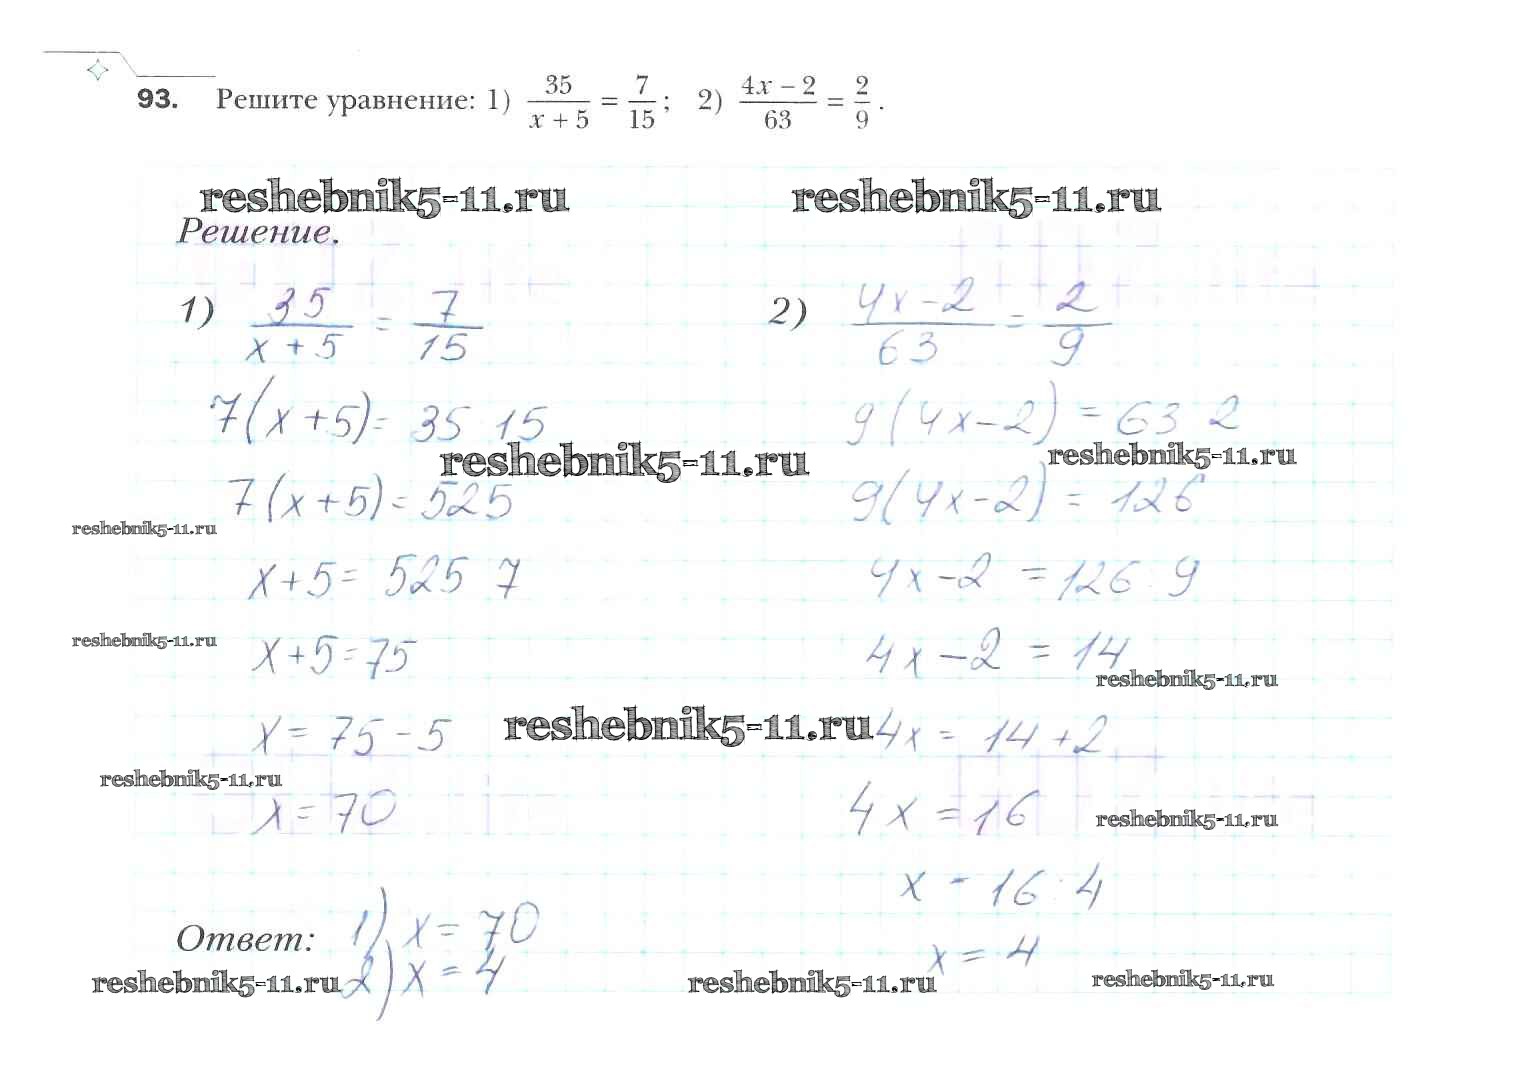 93. Решите уравнение: 1) 35/(x + 5) = 7/15; 2) (4x − 2)/63 = 2/9.
reshebnik5-11.ru reshebnik5-11.ru
Решение.
1) 35/(x + 5) = 7/15
7(x + 5) = 35 15
reshebnik5-11.ru
7(x + 5) = 525
reshebnik5-11.ru
x + 5 = 525 7
reshebnik5-11.ru
x + 5 = 75
x = 75 − 5
reshebnik5-11.ru
reshebnik5-11.ru
x = 70
2) (4x − 2)/63 = 2/9
9(4x − 2) = 63 2
reshebnik5-11.ru
9(4x − 2) = 126
4x − 2 = 126 : 9
4x − 2 = 14
reshebnik5-11.ru
4x = 14 + 2
4x = 16
reshebnik5-11.ru
x = 16 : 4
x = 4
Ответ: 1) x = 70
2) x = 4
reshebnik5-11.ru reshebnik5-11.ru reshebnik5-11.ru